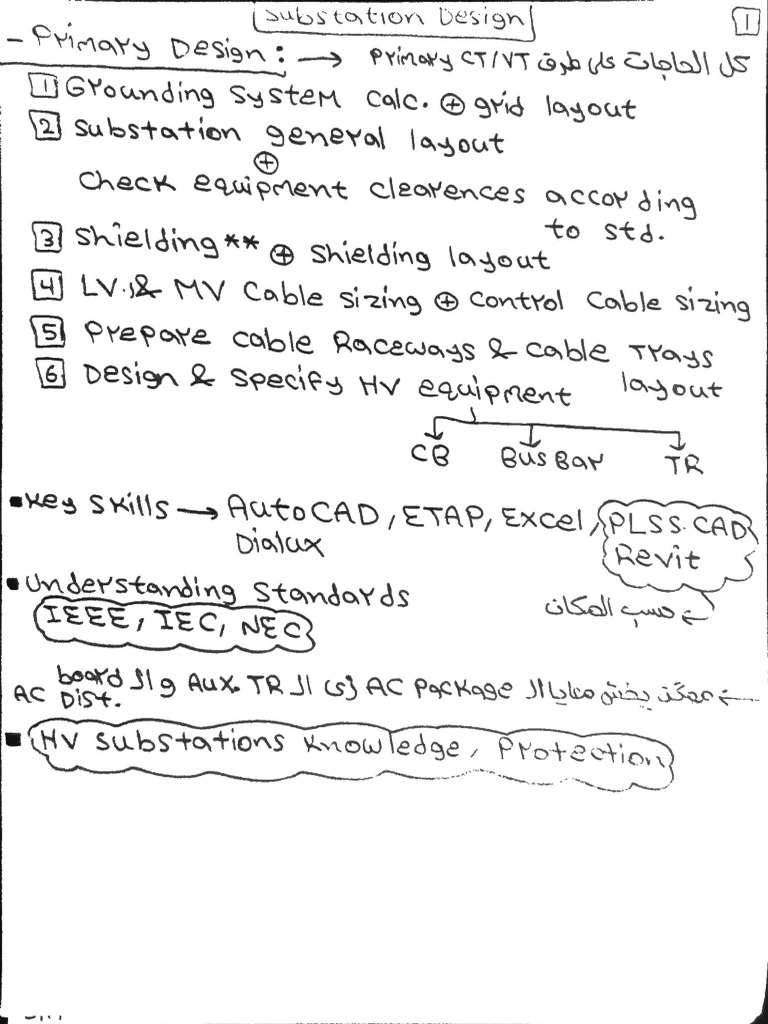 Substation Design
1
- Primary Design: → كل الحاجات على طرف Primary CT/VT
1 Grounding system calc. ⊕ grid layout
2 Substation general layout
⊕
Check equipment clearences according
to std.
3 Shielding** ⊕ Shielding layout
4 LV & MV Cable sizing ⊕ Control Cable sizing
5 Prepare cable Raceways & Cable Trays
layout
6 Design & Specify HV equipment
CB Bus Bar TR
▪ Key Skills → AutoCAD, ETAP, Excel, PLSS.CAD
Dialux Revit
▪ Understanding Standards
← حسب المكان
IEEE, IEC, NEC
← ممكن يخش معايا ال AC Package زي ال Aux. TR و ال board
AC Dist.
▪ HV substations Knowledge, Protection